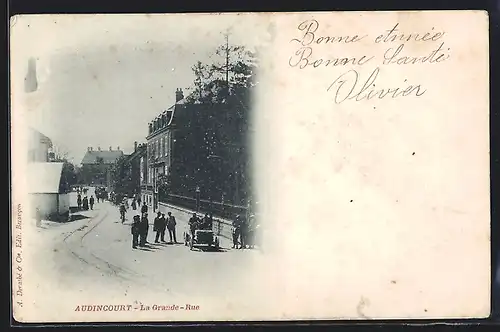 Bonne Année
Bonne Santé
Olivier
AUDINCOURT - La Grande-Rue
Edit. Besançon